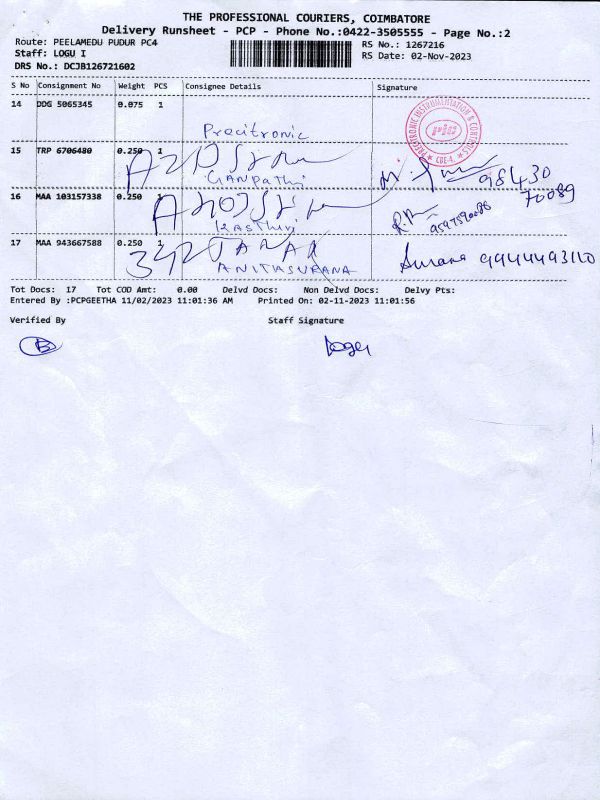 THE PROFESSIONAL COURIERS, COIMBATORE
Delivery Runsheet - PCP - Phone No.:0422-3505555 - Page No.:2
Route: PEELAMEDU PUDUR PC4
RS No.: 1267216
Staff: LOGU I
RS Date: 02-Nov-2023
DRS No.: DCJB126721602
S No Consignment No Weight PCS Consignee Details Signature
14 DDG 5065345 0.075 1
Precitronic
PRECITRONIC INSTRUMENTATION & CONTROLS
pic
CBE-4.
15 TRP 6706480 0.250 1
GANPathi
98430
70089
16 MAA 103157338 0.250 1
Kasthuri
9597590086
17 MAA 943667588 0.250 1
342
ANITHASURANA
Surana 9944493110
Tot Docs: 17 Tot COD Amt: 0.00 Delvd Docs: Non Delvd Docs: Delvy Pts:
Entered By :PCPGEETHA 11/02/2023 11:01:36 AM Printed On: 02-11-2023 11:01:56
Verified By Staff Signature
B Loger